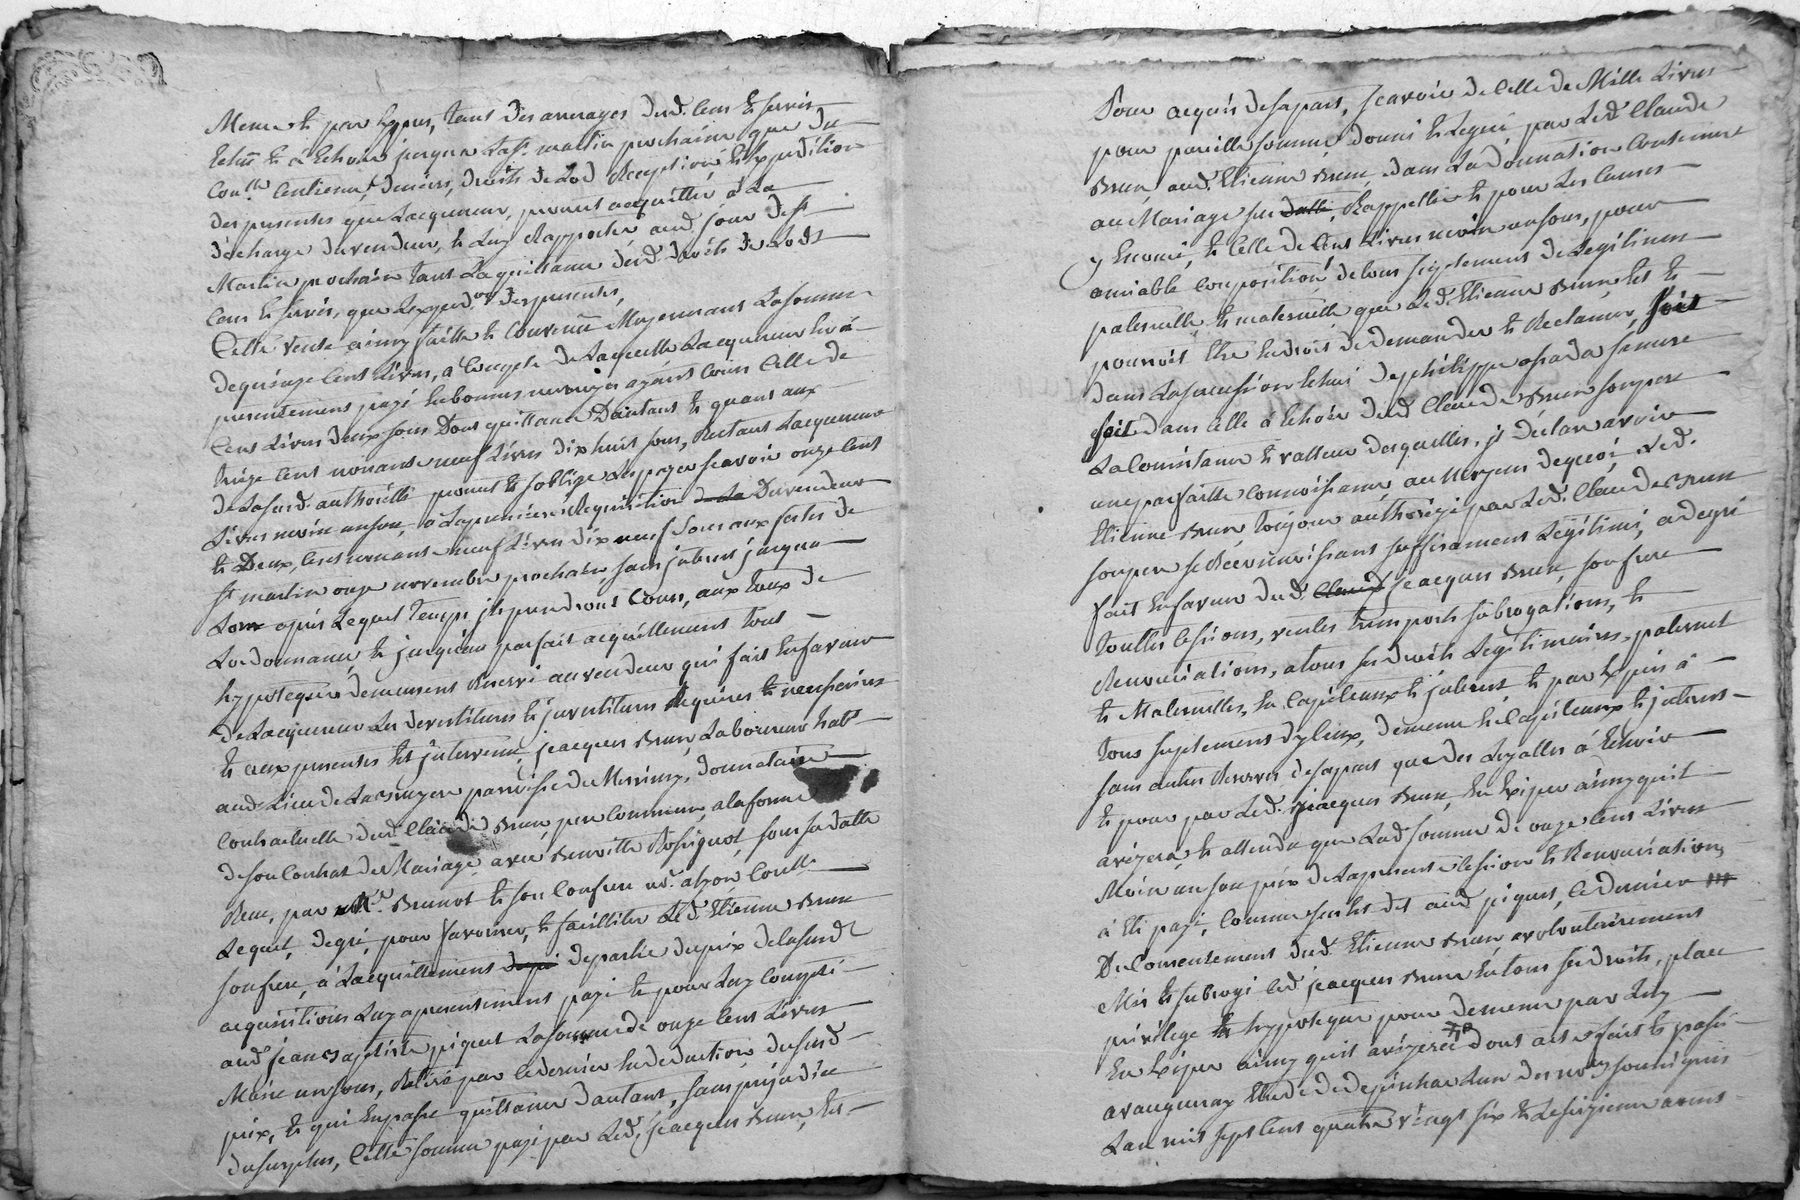 Meme et par expres, tant des arrerages dud. Cens et servis
echus et à echoir jusqua la st. martin prochaine que du
Con.lle Centieme denier, droits de Lod Reception et Expedition
des presentes que Lacquereur, promet acquitter à La
décharge du vendeur, et Luy Rapporter aud. jour de st.
Martin prochain tant La quittance desd. droits de Lods
Cens et servis, que Lexped.on des presentes,
Cette vente ainsy faitte et Convenüe Moyennant La somme
de quinze Cent Livres, a Compte de Laquelle Lacquereur en a
presentement payé en bonnes monnoyes ayant Cours Celle de
Cent Livres deux sous Dont quittance Dautant et quant aux
treize Cent nonante neuf Livres dix huit sous, Restant Lacquereur
de La susd. authorité promet et soblige Les payer scavoir onze Cent
Livres moin un sou, à La premiere Requisition du vendeur
et Deux Cent nonante neuf Livres dix neuf sous aux festes de
st martin onze novembre prochain, sans interest jusqua
Lors apres Lequel temps ils prendront Cours, aux taux de
Lordonnance, et jusquau parfait acquittement tout
hypoteque demeurent Reservé au vendeur qui fait en faveur
de Lacquereur Les devestitures et investitures Requises et necessaires
et aux presentes est intervenu, jeacques Brun, Laboureur hab.t
aud. Lieu de La Bruyere parroisse de Messimy, donnataire
Contractuelle dud. Claude Brun, pere Commun, a la forme
de son Contrat de Mariage avec Benoitte Rossignol sous sa datte
Receu, par Me. Brunot et son Confrere no.re a Lyon Coll.
Lequel, de gré, pour favoriser, et facilliter Led. Etienne Brun
son frere, à Lacquittement de partie du prix de La susd.
acquisition Luy a presentement payé et pour Luy Compté
aud. jean Baptiste piquet La somme de onze Cent Livres
Moin un sous, Retiré par Ce dernier en deduction du susd.
prix, et qui En passe quittance dautant, sans prejudice
du surplus, Cette somme payé par Led. jeacques Brun, Est
Pour acquis de sa part, scavoir de Celle de Mille Livres
pour pareille somme donné et Legué par Led. Claude
Brun, aud. Etienne Brun, dans La donnation Contenue
au Mariage sus Rappellé et pour Les Causes
y Enoncé, et Celle de Cent Livres moin un sous, pour
amiable Composition de tous supplement de Legitimes
paternelle et maternelle que Led. Etienne Brun est et
pourroit Etre en droit de demander et Reclamer, soit
dans La succession echue de philippe sa mere
soit dans Celle à echoir dud. Claude Brun son pere
La Consistance et valleur desquelles, jl declare avoir
une parfaitte connoissance au Moyens dequoi, Led.
Etienne Brun, toujour authorizé par Led. Claude Brun
son pere se Reconnoissant suffisament Legitimé, a de gré
fait en faveur dud. jeacques Brun, son frere
touttes Cessions, ventes transports subrogations, et
Renonciations, a tous ses droits Legitimaires, paternel
et Maternelles, En Capiteaux et interest et par Exprès à
tous supplement dyceux, de meme et Capiteaux et interest
sans autres Reserves de sa part que des Loyalles à Echoir
et pour par Led. jeacques Brun, En Exiger ainsy quil
avizera et attendu que Lad. somme de onze Cent Livres
Moin un sou prix de La presente Cession et Renonciation
à Eté payé, Comme sus est dit aud. piquet, Ce dernier
Du Consentement dud. Etienne Brun a volontairement
Mis et subrogé Led. jeacques Brun En tous ses droits, place
privilege et hypoteque pour de meme par Luy
En Exiger ainsy quil avizera dont acte fait et passé
a vaugneray Etude de depinhac Lun des no.res soussignés
Lan mil sept Cent quatre vingt six et Le seizieme aoust